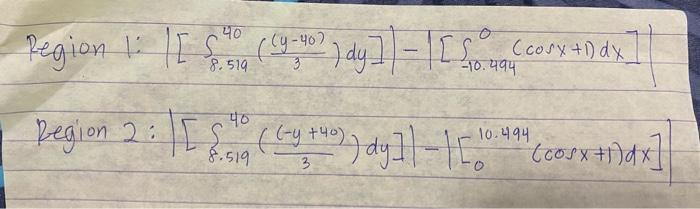 Region 1: |[∫_{8.519}^{40} ((y-40)/3) dy]| - |[∫_{-10.494}^{0} (cosx+1)dx]|
Region 2: |[∫_{8.519}^{40} ((-y+40)/3) dy]| - |[∫_{0}^{10.494} (cosx+1)dx]|